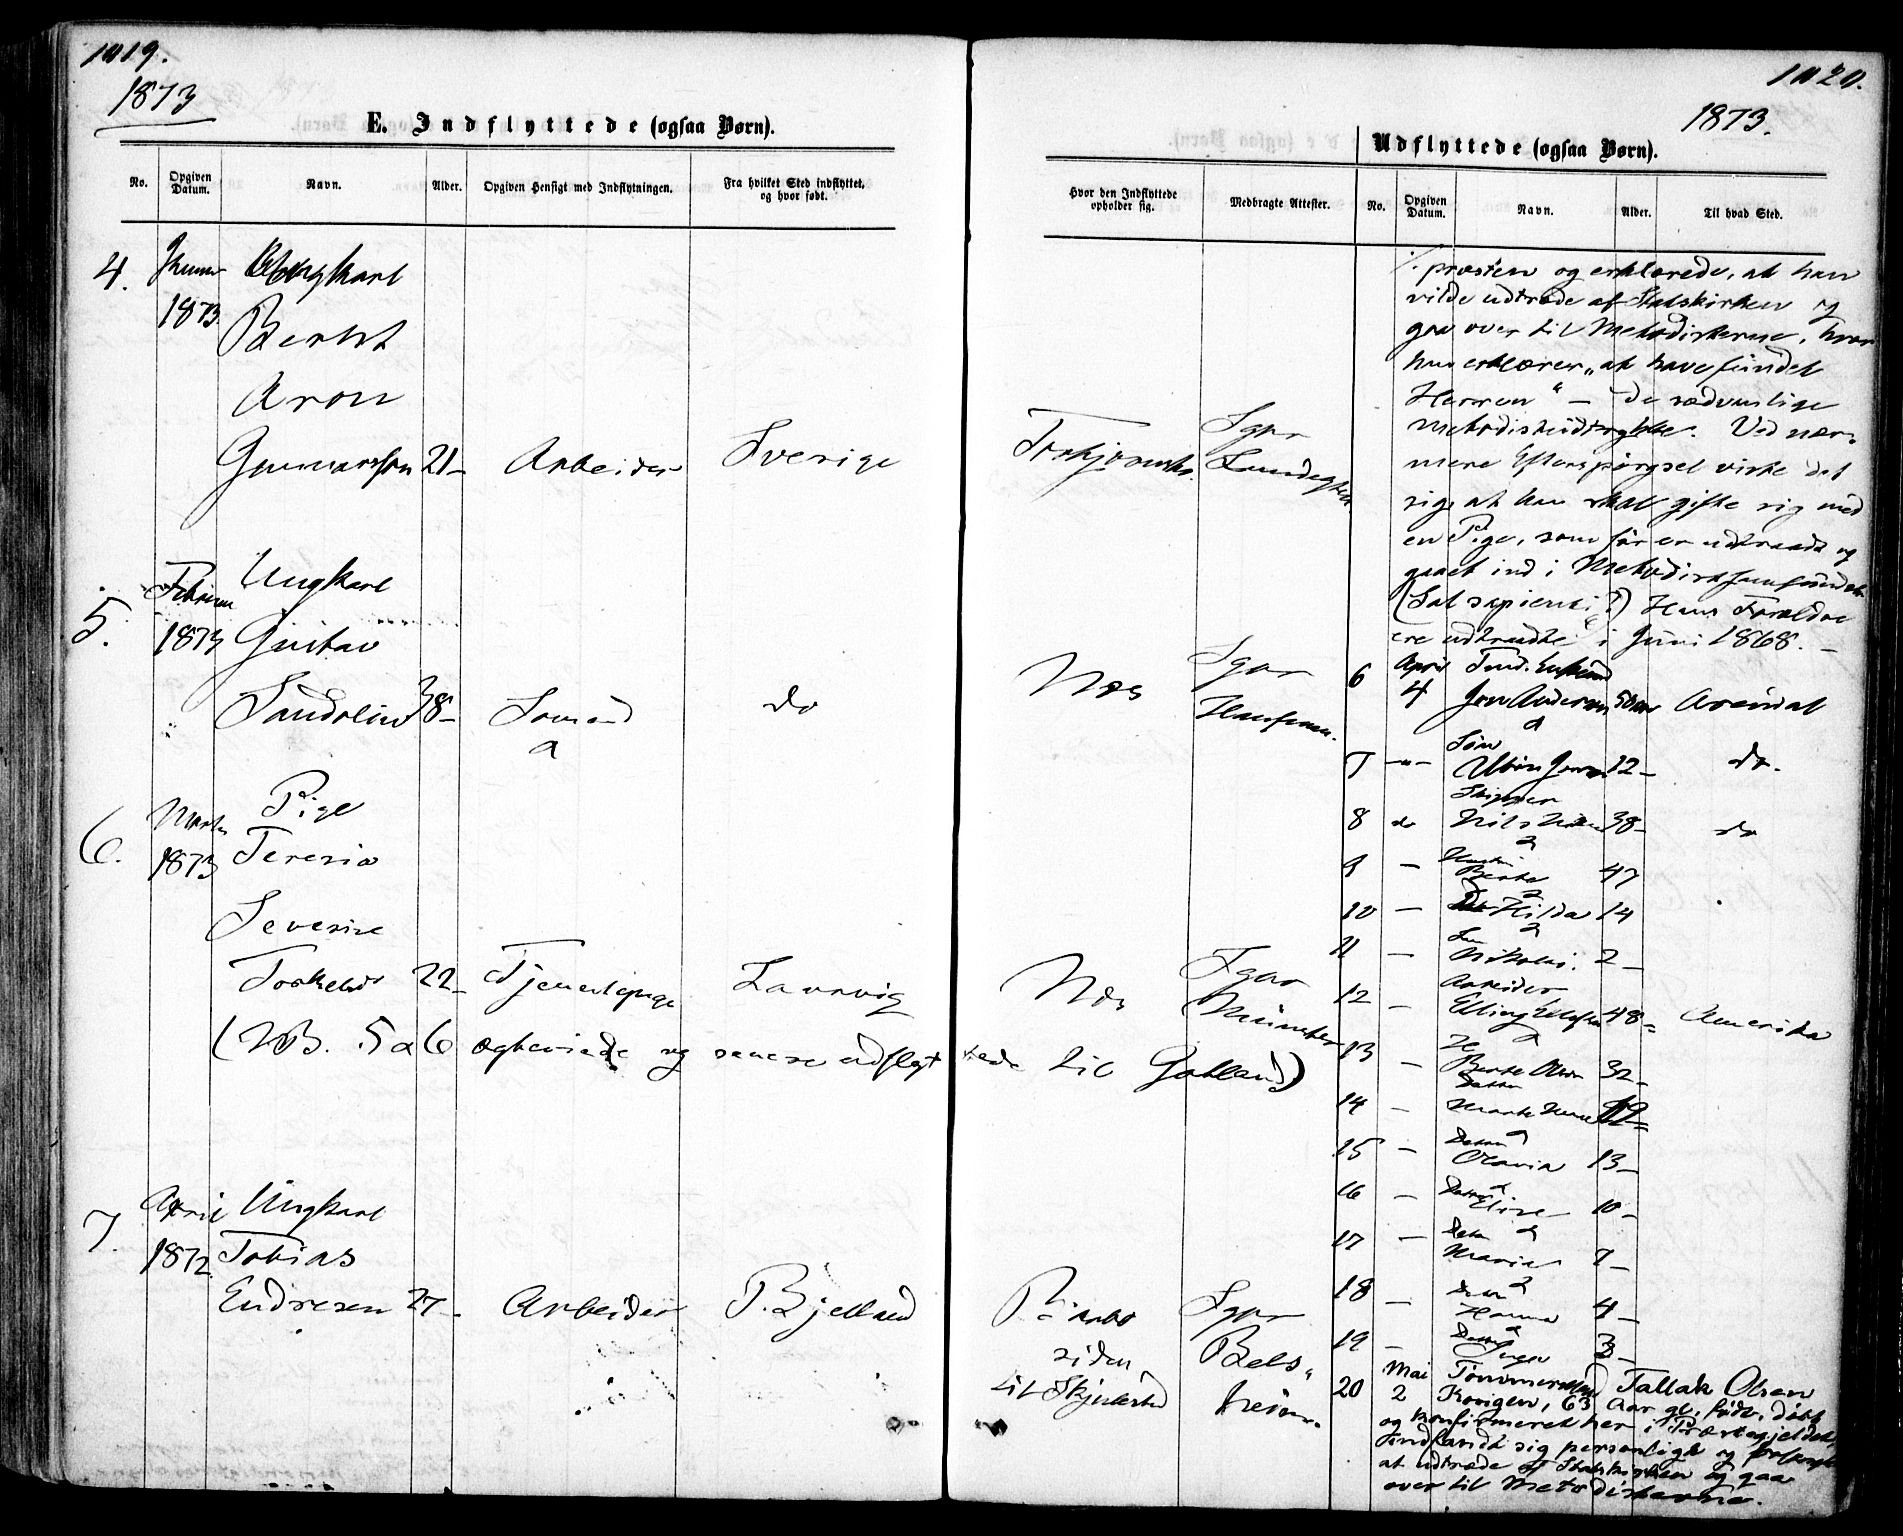 1019.
1873
E. Indflyttede (ogsaa Børn).
No.
Opgiven Datum.
Navn.
Alder.
Opgiven Hensigt med Indflytningen.
Fra hvilket Sted indflyttet, og hvor født.
4.
1873
Ungkarl
Bernt
Aron
Gunnarssen 21- Arbeider Sverige
5.
Februar
1873
Ungkarl
Gustav
Sandelin 38- Sømand do
6.
Marts
1873
Pige
Teresia
Severine
Torkelsd 22- Tjenestepige Laurvig
(NB. 5 a 6 ægteviede og senere udflyt tede til Gotland)
7.
April
1872
Ungkarl
Tobias
Endresen 27- Arbeider P. Bjelland
1020.
1873.
Udflyttede (ogsaa Børn).
Hvor den Indflyttede opholder sig.
Medbragte Attester.
No.
Opgiven Datum.
Navn.
Alder.
Til hvad Sted.
Sgpr
Næs Sgpr
Næs Sgpr
Münster
Sgpr
siden
til
præsten og erklærede, at han
vilde udtræde af Statskirken og
gaa over til Methodisterne, hvor
han erklærer "at have fundet
Herren" - de sædvanlige
methodistiudtrykke. Ved nær-
mere Efterspørgsel viste det
sig at han skal gifte sig med
en Pige, som før er udtraadt og
gaaet ind i Methodistsamfundet
(Sat sapienti!) Hans Forældre
ere udtraadte i Juni 1868. -
6 April
4 Jens Andersen 50 Aar Arendal
7 -"- Søn
12- do.
8 do Skipper
Nils 38- do
9 - Hustru
Berte 47
10 - Hilda 14
11 - Søn
Nikolai. 2-
12 - Arbeider
Elling 48- Amerika
13 - H
Berte Olsen 32-
14 - Datter
15 - Datter
Olavia 13-
16 - Datter
Elise 10-
17 - Datter
Maria 7-
18 - Hanna 4-
19 - Datter
Inger 3-
20 Mai
2 Tømmermand Tallak Olsen
63 Aar gl. født, døbt
og konfirmeret her i Præstegjeldet,
indfandt sig personligt og
at udtræde af Statskirken og gaa
over til Metodisterne.